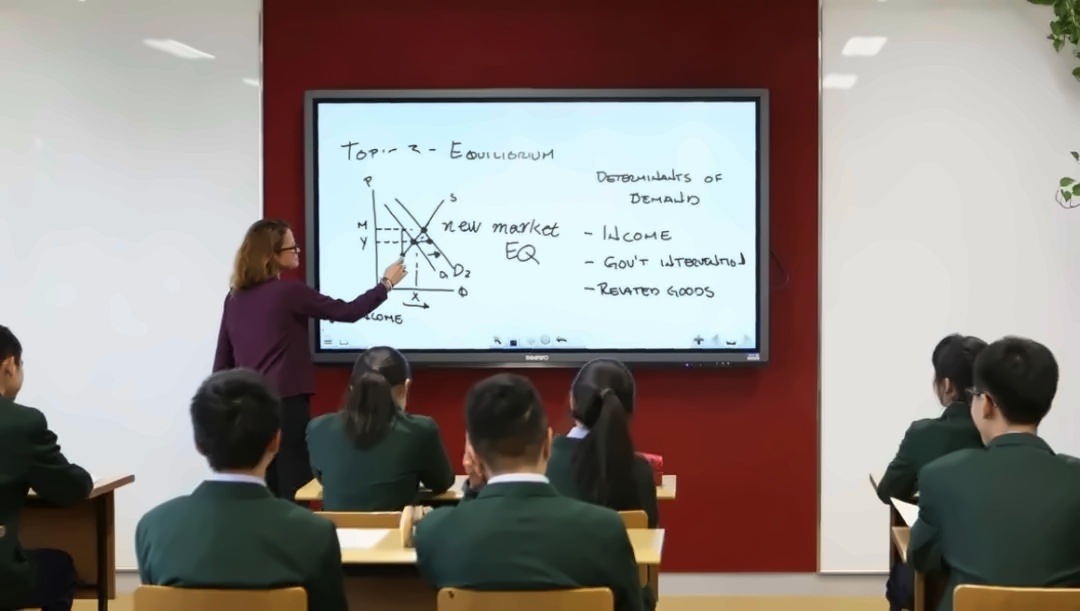 Topic 2 - EQUILIBRIUM
P
S
M
Y
new market
EQ
D2
X
DETERMINANTS OF
DEMAND
- INCOME
- GOV'T INTERVENTION
- RELATED GOODS